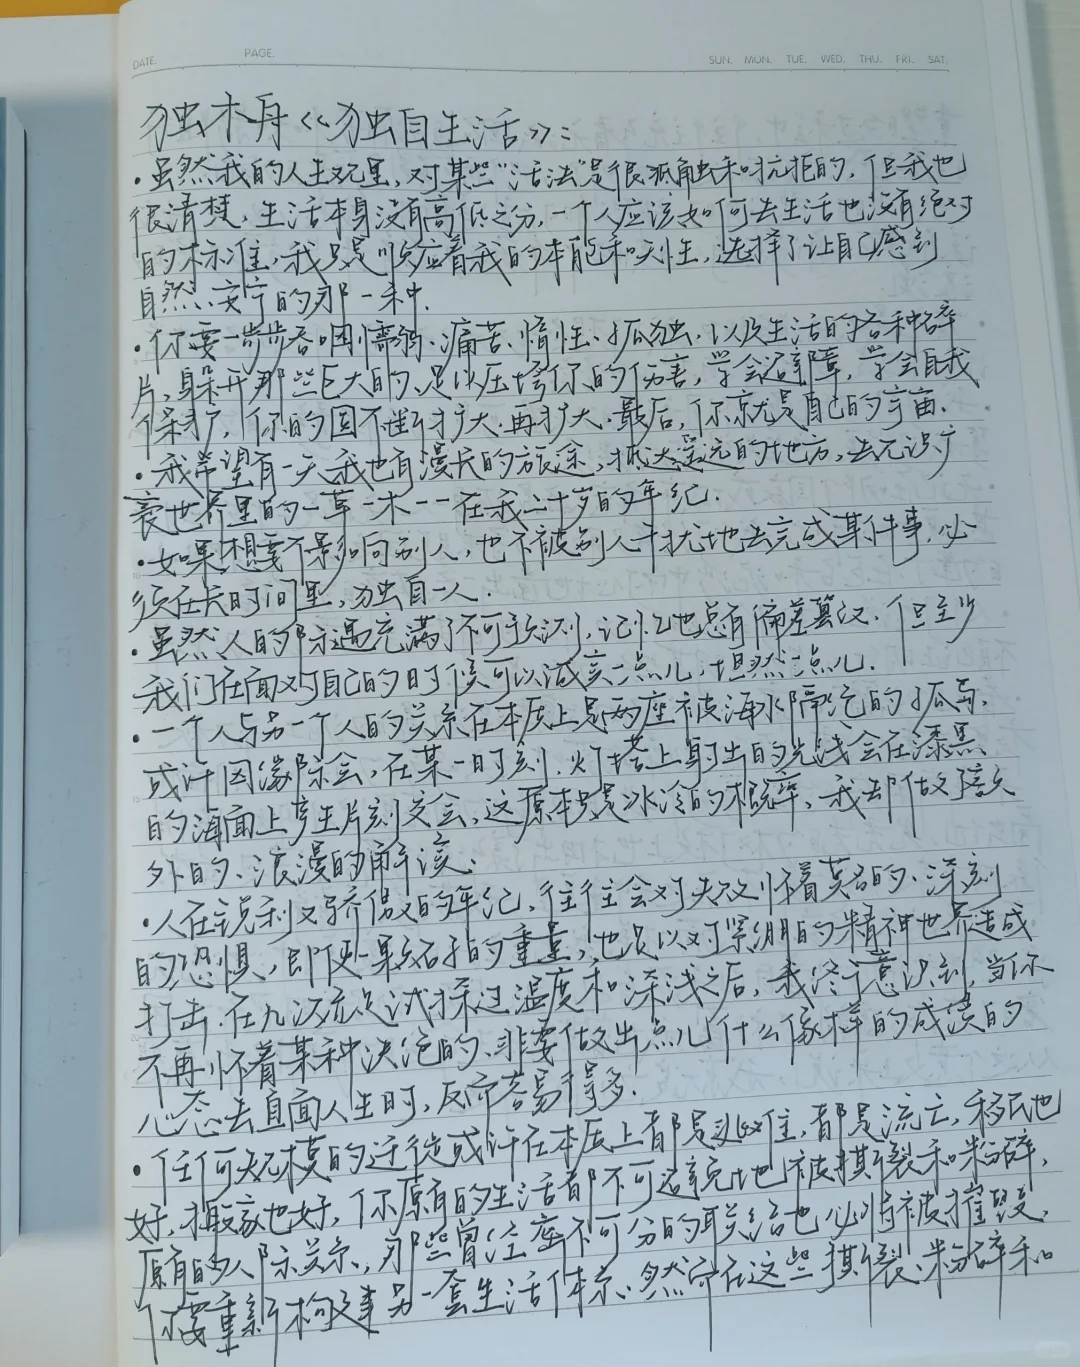 DATE. PAGE. SUN. MON. TUE. WED. THU. FRI. SAT.
独木舟《独自生活》:
·虽然我的人生观里,对某些"活法"是很抵触和抗拒的,但我也
很清楚,生活本身没有高低之分,一个人应该如何去生活也没有绝对
的标准,我只是顺应着我的本能和天性,选择了让自己感到
自然、安宁的那一种.
·你要一步步吞咽懦弱、痛苦、惰性、孤独、以及生活的各种碎
片,躲开那些巨大的、足以压垮你的伤害,学会避障,学会自我
保护,你的圆不断扩大、再扩大.最后,你就是自己的宇宙.
·我希望有一天我也有漫长的旅途,抵达遥远的地方,去见识广
袤世界里的一草一木——在我二十岁的年纪.
·如果想要不影响别人,也不被别人干扰地去完成某件事,必
须在长时间里,独自一人.
·虽然人的际遇充满了不可预测,记忆也总有偏差篡改.但至少
我们在面对自己的时候可以诚实一点儿,坦然一点儿.
·一个人与另一个人的关系在本质上是两座被海水隔绝的孤岛,
或许因缘际会,在某一时刻.灯塔上射出的光线会在漆黑
的海面上产生片刻交会,这原本只是冰冷的概率,我却做了格
外的、浪漫的解读.
·人在锐利又骄傲的年纪,往往会对失败怀着莫名的、深刻
的恐惧,即使一颗石子的重量,也足以对紧绷的精神世界造成
打击.在九次流足试探过温度和深浅之后,我终于意识到,当你
不再怀着某种决绝的、非要做出点儿什么像样的成绩的
心态去直面人生时,反而容易得多.
·任何规模的迁徙或许在本质上都是,都是流亡,移民也
好,搬家也好,你原有的生活都不可避免地被撕裂和粉碎,
原有的人际关系,那些曾经密不可分的联结也必将被摧毁,
你要重新构建另一套生活体系、然而在这些撕裂、粉碎和